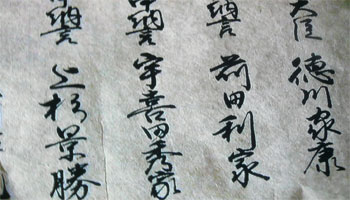 大臣 徳川家康
言 前田利家
中納言 宇喜田秀家
納言 上杉景勝